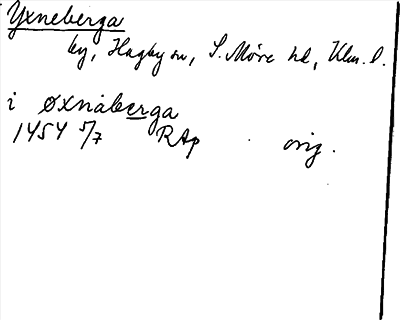 Yxneberga
by, Hagby sn, S. Möre hd, Klm. l.
i øxnaberga
1454 5/7 RAp orig.